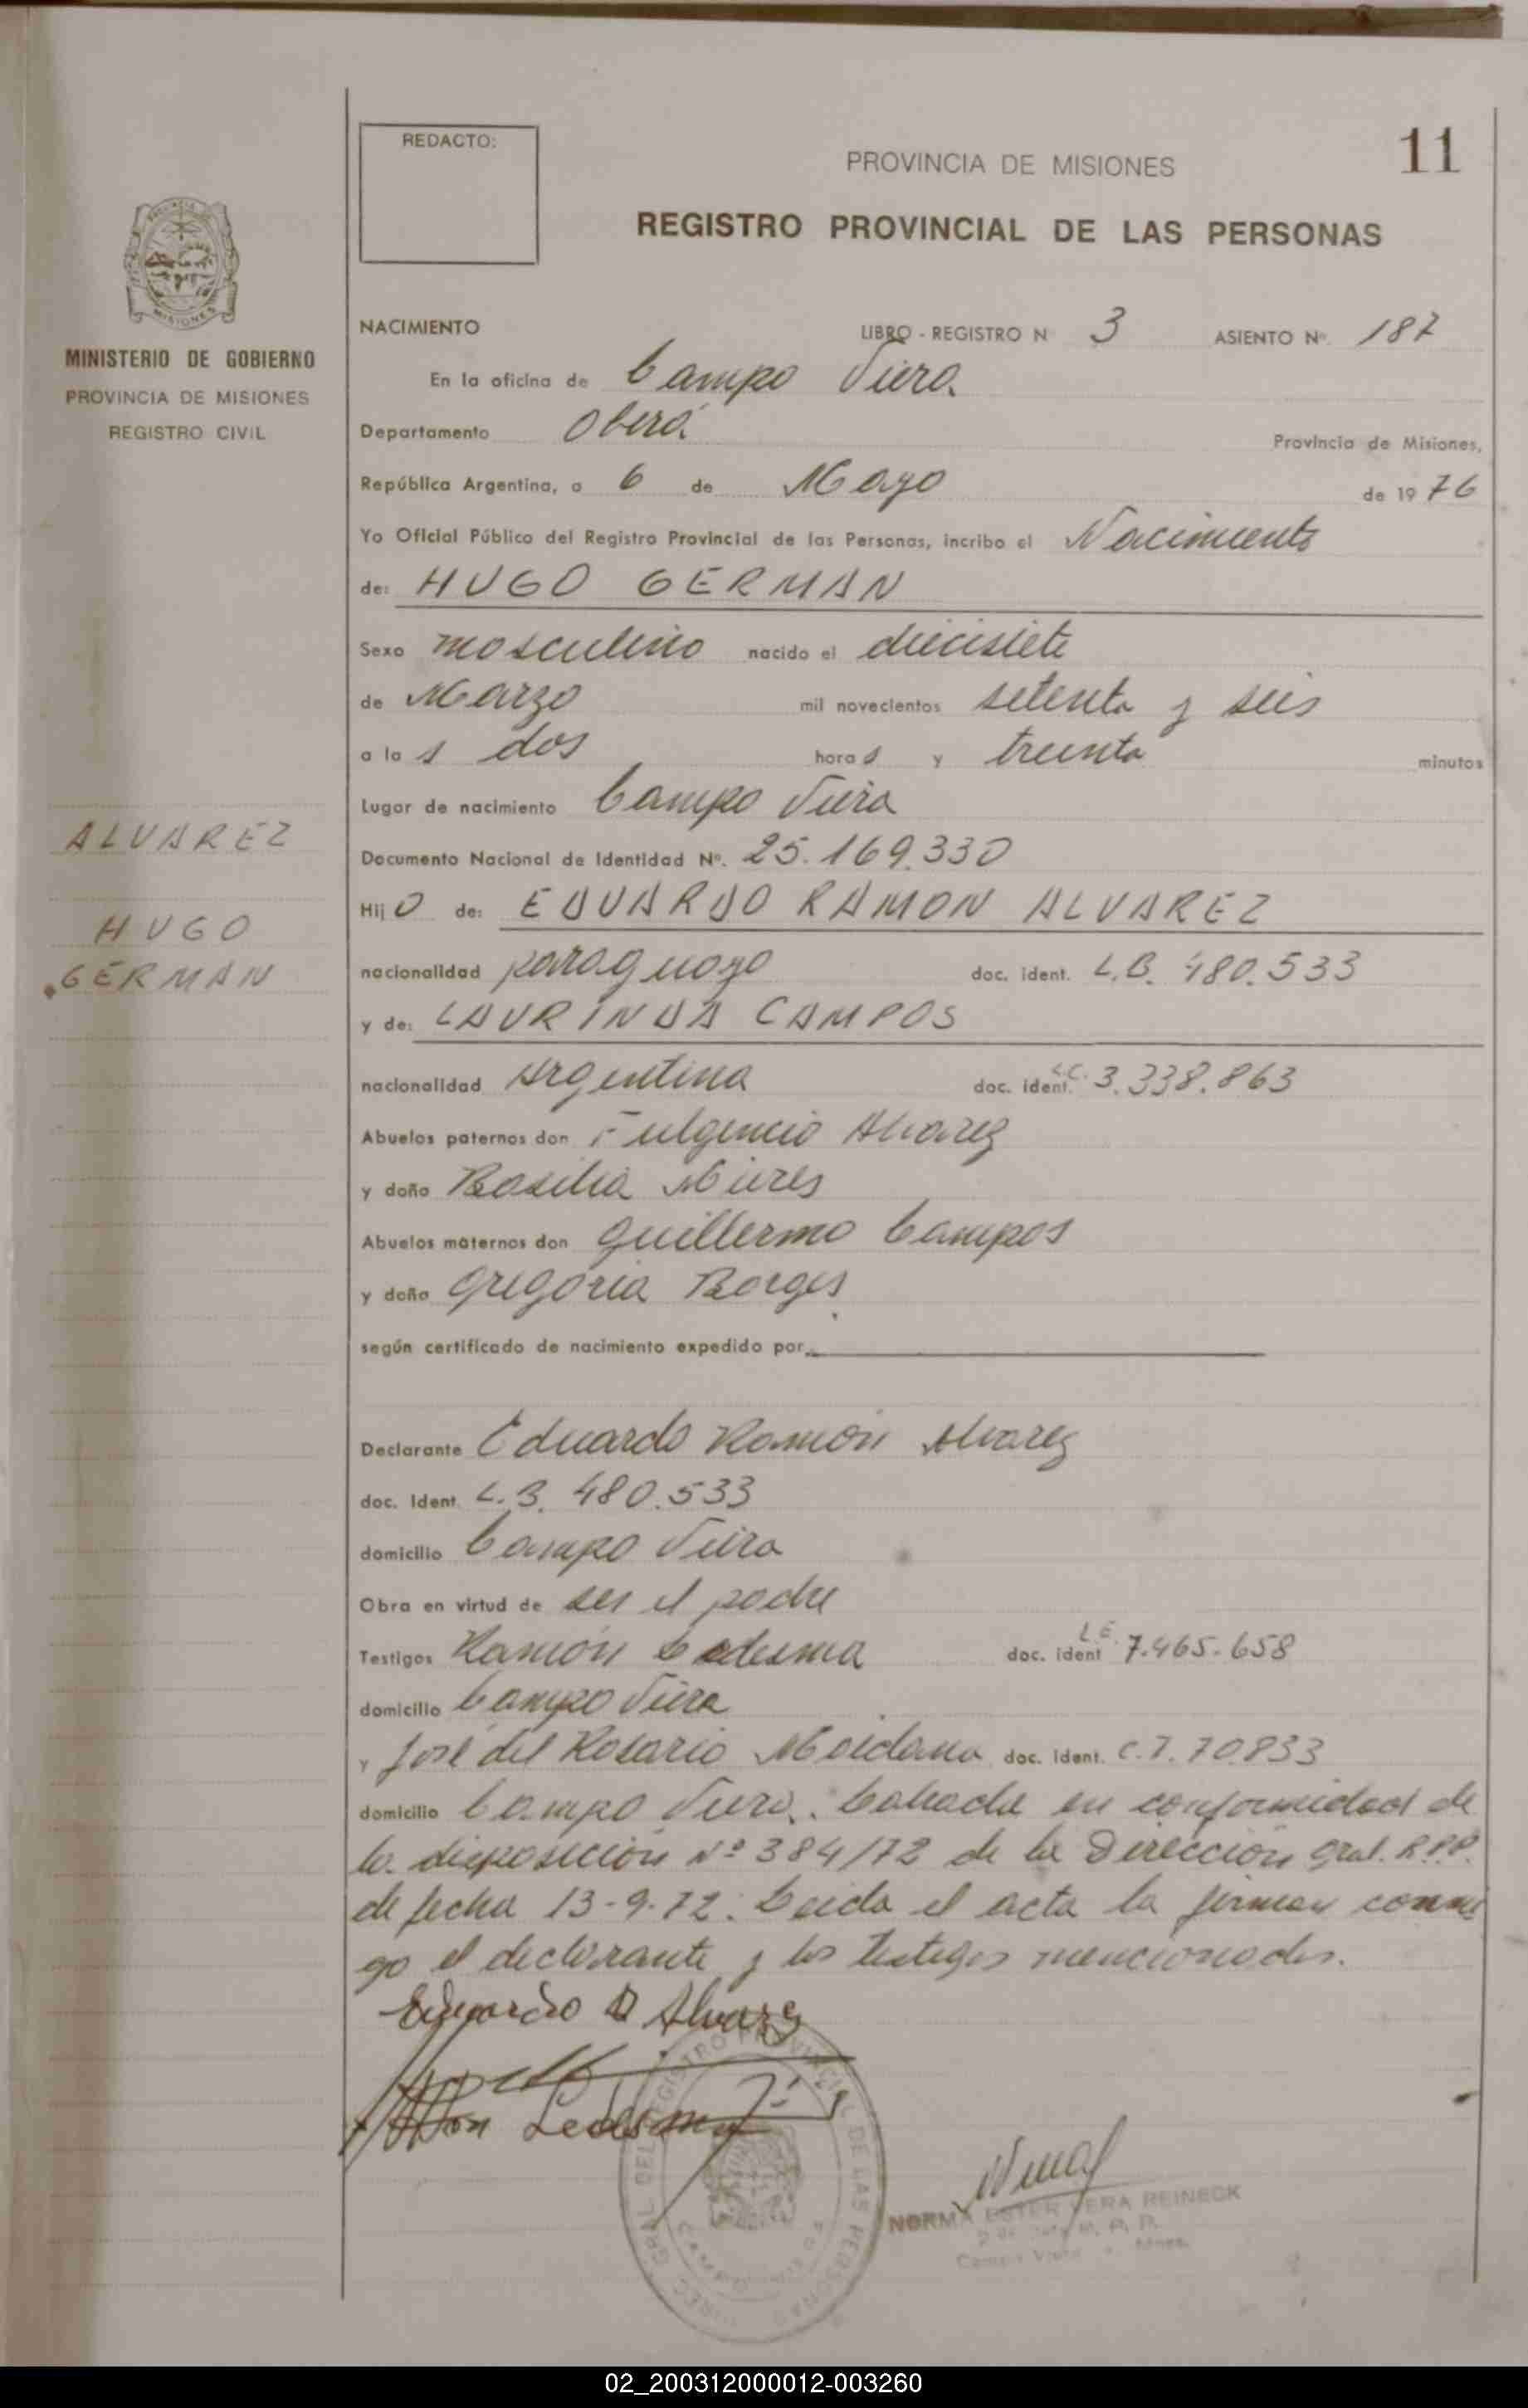 REDACTO:
PROVINCIA DE MISIONES
11
REGISTRO PROVINCIAL DE LAS PERSONAS
MINISTERIO DE GOBIERNO
PROVINCIA DE MISIONES
REGISTRO CIVIL
NACIMIENTO LIBRO - REGISTRO N 3 ASIENTO Nº. 187
En la oficina de Campo Viera
Departamento Oberá Provincia de Misiones,
República Argentina, a 6 de Mayo de 1976
Yo Oficial Público del Registro Provincial de las Personas, incribo el Nacimiento
de: HUGO GERMAN
Sexo masculino nacido el diecisiete
de Marzo mil novecientos setenta y seis
a las dos horas y treinta minutos
Lugar de nacimiento Campo Viera
ALVAREZ
Documento Nacional de Identidad Nº. 25.169.330
Hijo de: EDUARDO RAMON ALVAREZ
HUGO
GERMAN
nacionalidad paraguayo doc. ident. L.B. 480.533
y de: LAURINDA CAMPOS
nacionalidad Argentina doc. ident. L.C. 3.338.863
Abuelos paternos don Fulgencio Alvarez
y doña Basilia
Abuelos maternos don Guillermo Campos
y doña Gregoria Borges
según certificado de nacimiento expedido por
Declarante Eduardo Ramón Alvarez
doc. Ident. L.B. 480.533
domicilio Campo Viera
Obra en virtud de ser el padre
Testigos Ramón Ledesma doc. ident L.E. 7.465.658
domicilio Campo Viera
y José del Rosario Maidana doc. Ident. C.I. 70.833
domicilio Campo Viera. en conformidad de
la disposición Nº 384/72 de la Dirección Gral. R.P.P.
de fecha 13-9-72. Leida el acta la firman conmi
go el declarante y los testigos mencionados.
Eduardo R Alvarez
Ledesma
NORMA ESTER VERA REINECK
02_200312000012-003260